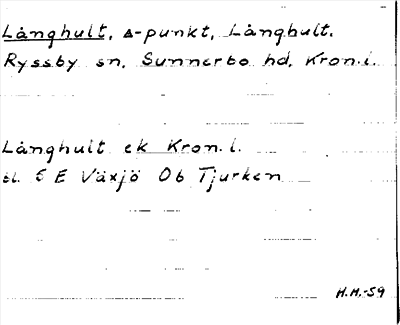 Långhult, Δ-punkt, Långhult.
Ryssby sn, Sunnerbo hd, Kron.l.
Långhult ek Kron.l.
bl. 5 E Växjö Ob Tjurken
H.H.-59